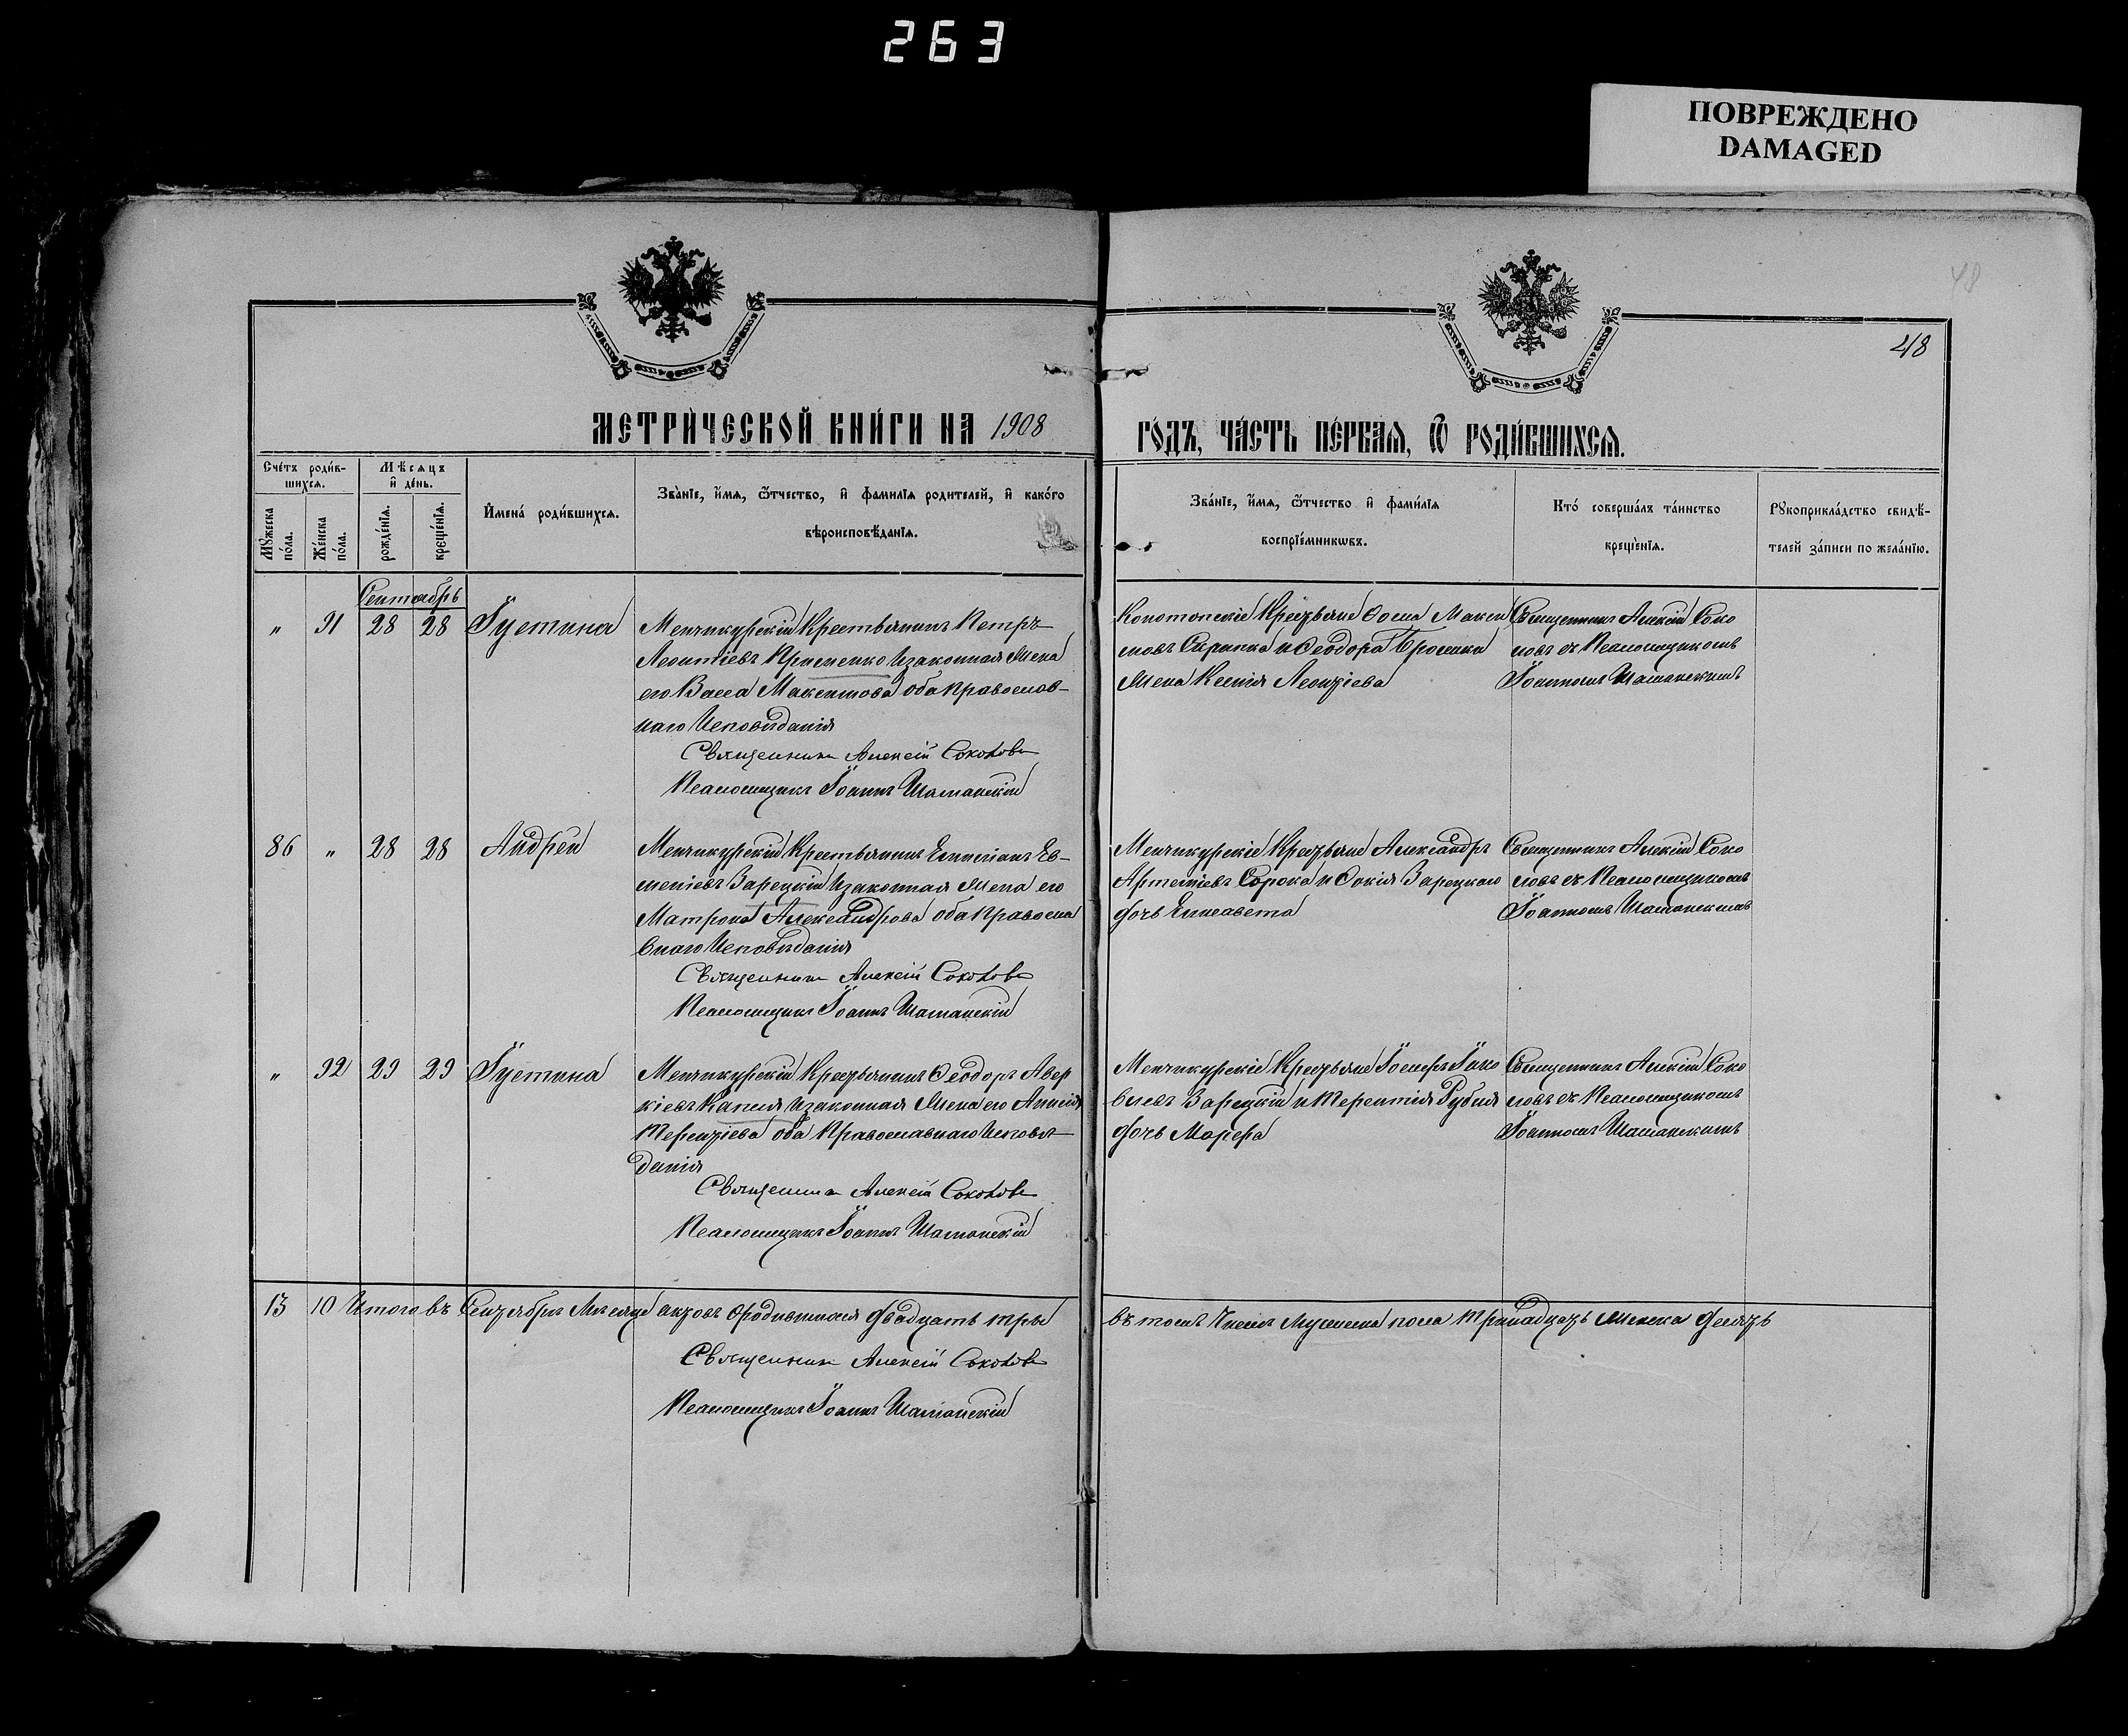 263
ПОВРЕЖДЕНО
DAMAGED
48
48
МЕТРИ́ЧЕСКОЙ КНИ́ГИ НА 1908
ГО́ДЪ, ЧА́СТЬ ПЕ́РВАѦ, Ѿ РОДИ́ВШИХСѦ.
Сче́тъ роди́в-
шихсѧ.
Мѣсѧцъ
и҆ де́нь.
Мꙋ́жеска по́ла.
Же́нска по́ла.
рожде́нїѧ.
креще́нїѧ.
И҆мена́ роди́вшихсѧ.
Зва́нїе, и҆́мѧ, ѻ҆́тчество, и҆ фамилїѧ родителей, и҆ како́го
вѣроисповѣ́данїѧ.
Зва́нїе, и҆́мѧ, ѻ҆́тчество и҆ фами́лїѧ
воспрїе́мникѡвъ.
Кто́ соверша́лъ та́инство
креще́нїѧ.
Рꙋкоприкла́дство свидѣ́-
телей за́писи по жела́нїю.
Сентябрь
" 91 28 28 Іустина
Менчикурскій Крестьянинъ Петръ
Леонтіевъ Кришенко И законная Жена
его Васса Максимова оба Православ-
наго Исповѣданія
Священникъ Алексій Соколовъ
Псаломщикъ Іоаннъ Шаманскій
Конотопскіе Крестьяне Ѳома Макси
мовъ Скрипка и Ѳеодора
Жена Ксенія Леонтіева
Священникъ Алексій Соко
ловъ съ Псаломщикомъ
Іоанномъ Шаманскимъ
86 " 28 28 Андрей
Менчикурскій Крестьянинъ Емиліанъ Ев-
меніевъ Зарецкій И законная Жена его
Матрона Александрова оба Правосла
внаго Исповѣданія
Священникъ Алексій Соколовъ
Псаломщикъ Іоаннъ Шаманскій
Менчикурскіе Крестьяне Александръ
Артеміевъ Сорока и Ѳокія Зарецкаго
дочь Елисавета
Священникъ Алексій Соко
ловъ съ Псаломщикомъ
Іоанномъ Шаманскимъ
" 92 29 29 Іустина
Менчикурскій Крестьянинъ Ѳеодоръ Авер
кіевъ Капля И законная Жена его Анисія
Терентіева оба Православнаго Исповѣ
данія
Священникъ Алексій Соколовъ
Псаломщикъ Іоаннъ Шаманскій
Менчикурскіе Крестьяне Іосифъ Іако
влевъ Зарецкій и Терентія Рубля
дочь Марѳа
Священникъ Алексій Соко
ловъ съ Псаломщикомъ
Іоанномъ Шаманскимъ
13 10 Итого въ Сентябрѣ Мѣсяцѣ актовъ о родившихся двадцать три
въ томъ Числѣ Мужеска пола Тринадцать Женска Десять
Священникъ Алексій Соколовъ
Псаломщикъ Іоаннъ Шаманскій